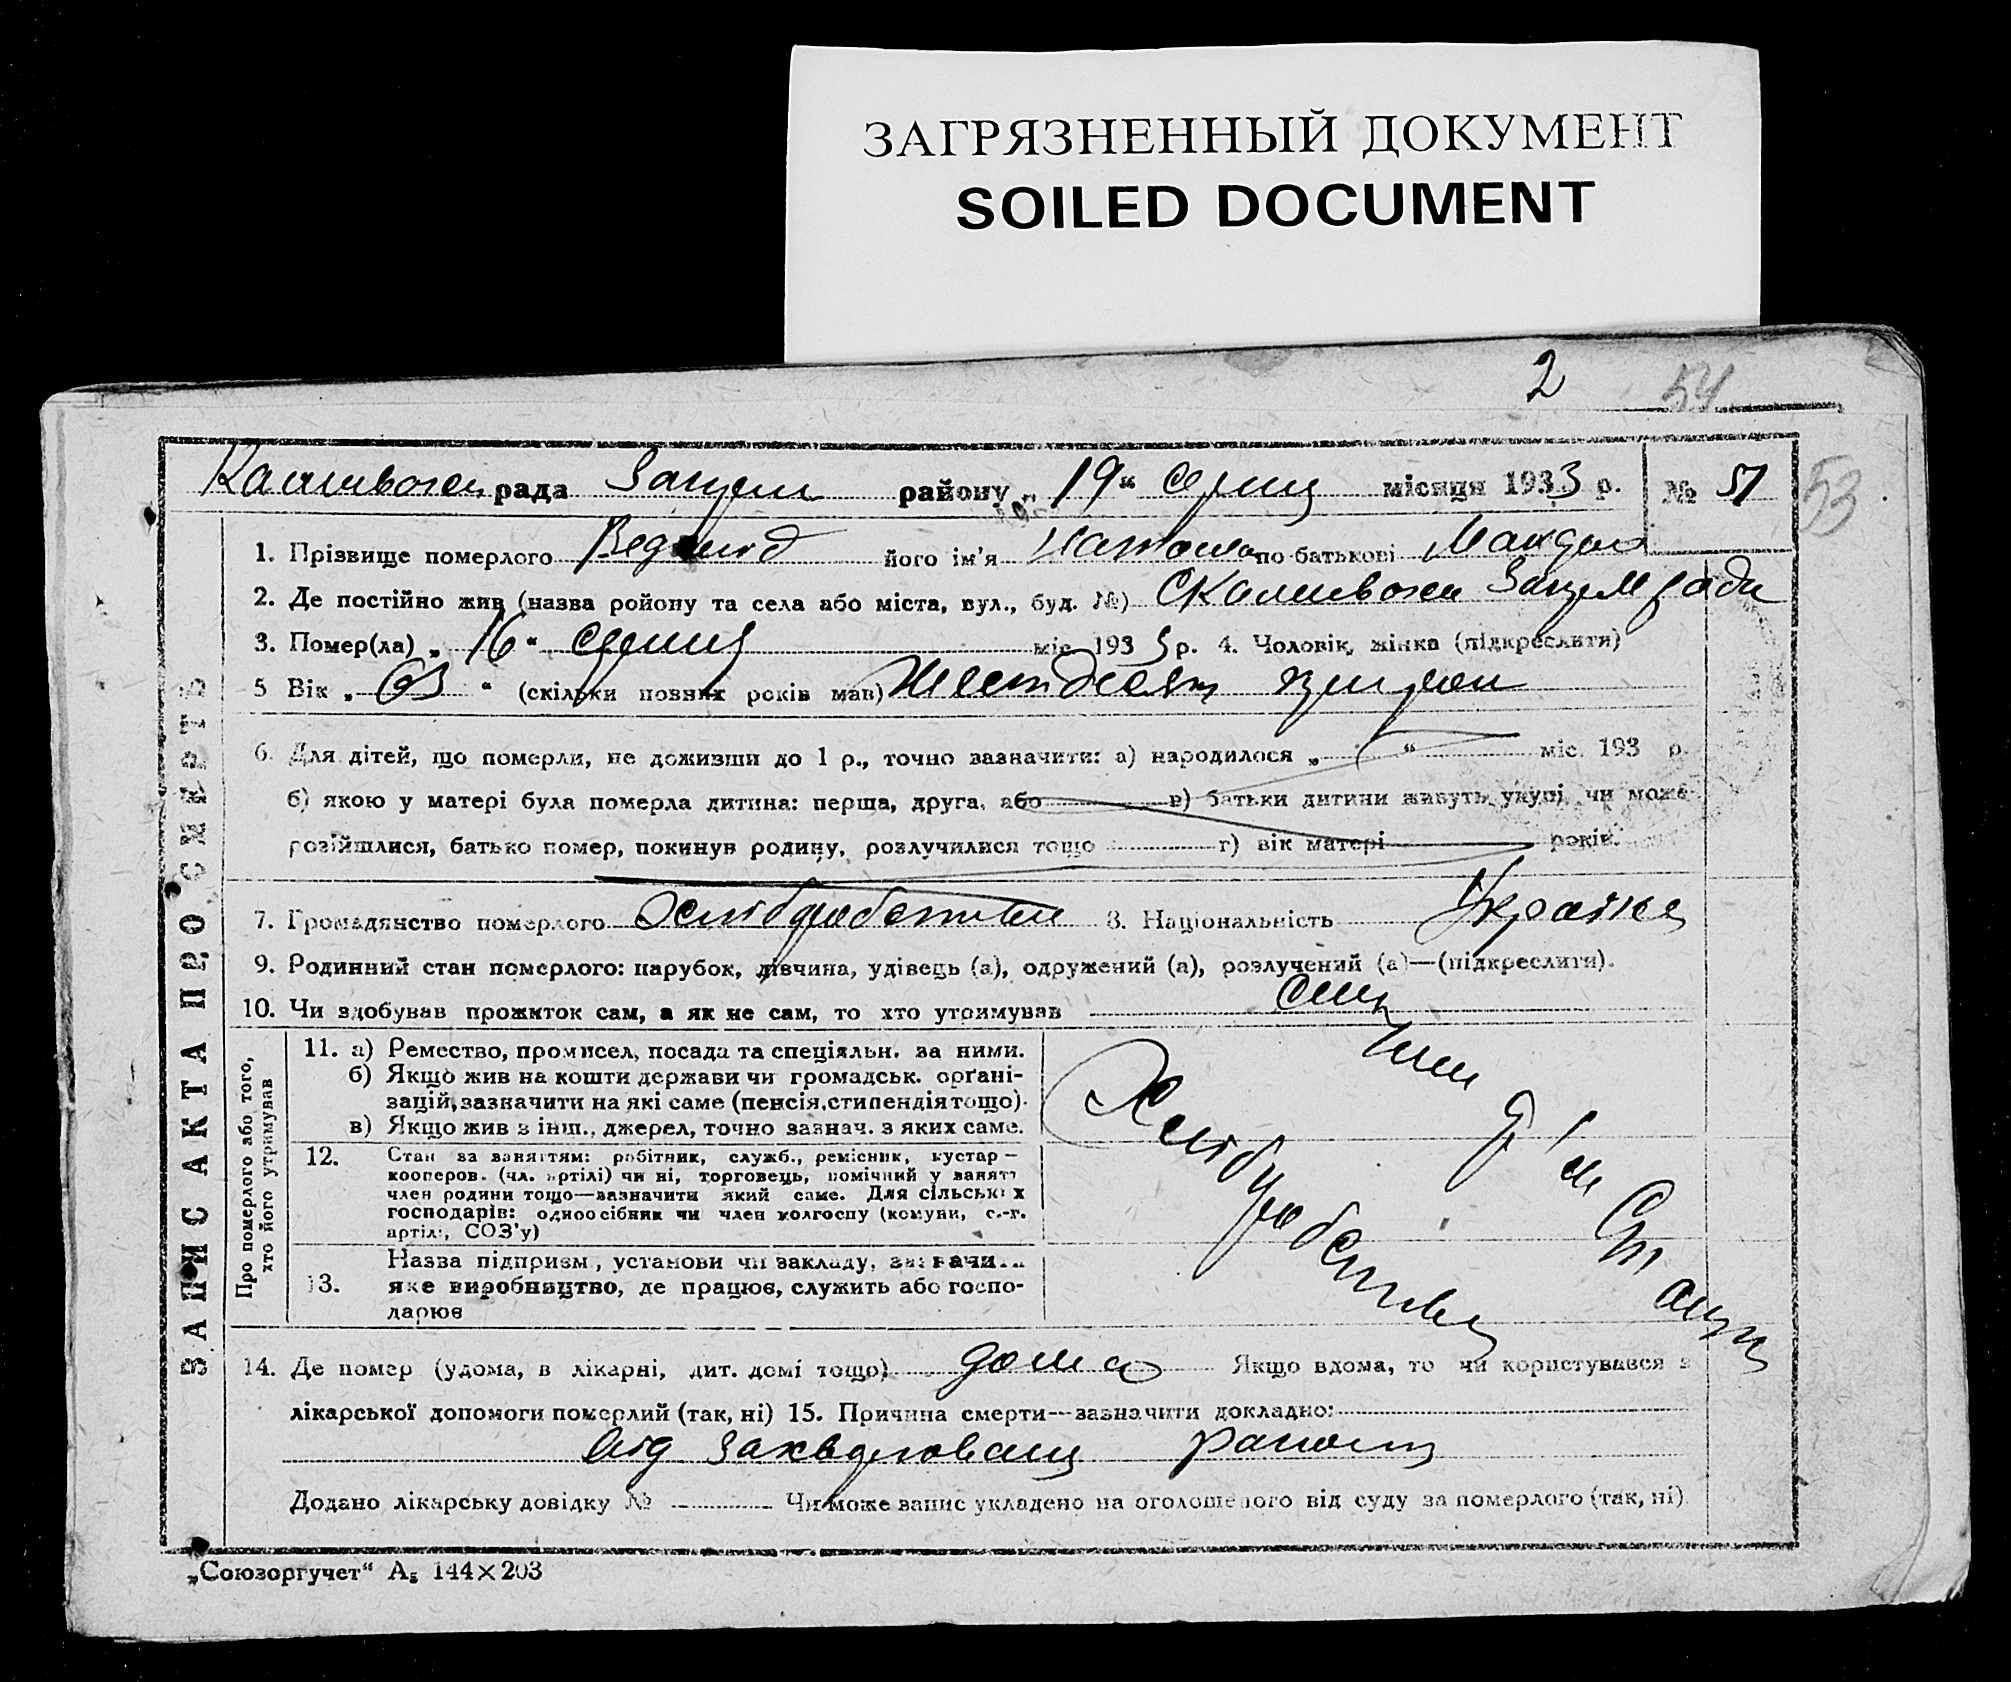 ЗАГРЯЗНЕННЫЙ ДОКУМЕНТ
SOILED DOCUMENT
2
54
53
рада район у „19“ серпня місяця 1933 р. № 51
1. Прізвище померлого його ім'я по батькові
2. Де постійно жив (назва ройону та села або міста, вул., буд. №)
3. Помер(ла) „16“ серпня міс 1933 р. 4. Чоловік, жінка (підкреслити)
5 Вік „63“ (скільки повних років мав) Шестдесят три роки
6. Для дітей, що померли, не доживши до 1 р., точно зазначити: а) народилося „ “ міс. 193 р.
б) якою у матері була померла дитина: перша, друга, або в) батьки дитини живуть укупі, чи може
розійшлися, батько помер, покинув родину, розлучилися тощо г) вік матері років.
7. Громадянство померлого хлібороб 8. Національність Україн
9. Родинний стан померлого: парубок, дівчина, удівець (а), одружений (а), розлучений (а)—(підкреслити).
10. Чи здобував прожиток сам, а як не сам, то хто утримував
ЗАПИС АКТА ПРО СМЕРТЬ
Про померлого або того, хто його утримував
11. а) Ремество, промисел, посада та спеціяльн. за ними.
б) Якщо жив на кошти держави чи громадськ. орґані-
зацій, зазначити на які саме (пенсія, стипендія тощо).
в) Якщо жив з інш., джерел, точно зазнач. з яких саме.
12. Стан за заняттям: робітник, служб., ремісник, кустар—
кооперов. (чл. артілі) чи ні, торговець, помічний у занятт
член родини тощо—зазначити який саме. Для сільських
господарів: одноосібник чи член колгоспу (комуни, с.-г.
артілі, СОЗ'у)
13. Назва підприєм, установи чи закладу, зазначити
яке виробництво, де працює, служить або госпо-
дарює
14. Де помер (удома, в лікарні, дит. домі тощо) дома Якщо вдома, то чи користувався з
лікарської допомоги померлий (так, ні) 15. Причина смерти—зазначити докладно:
від
Додано лікарську довідку № Чи може запис укладено на оголошеного від суду за померлого (так, ні)
„Союзоргучет“ А5 144×203